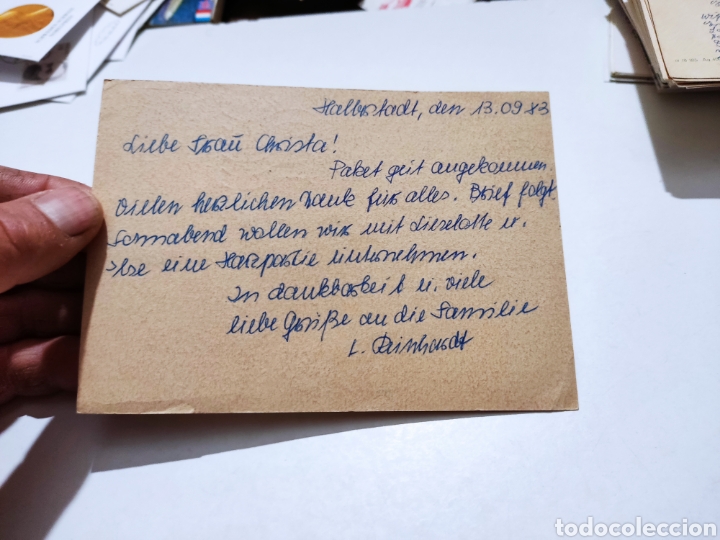 Halberstadt, den 13.09.83
Liebe Frau Christa!
Paket gut angekommen.
Vielen herzlichen Dank für alles. Brief folgt.
Sonnabend wollen wir mit Lieselotte u.
Ilse eine Harzpartie unternehmen.
In Dankbarkeit u. viele
liebe Grüße an die Familie
L. Reinhardt
todocoleccion